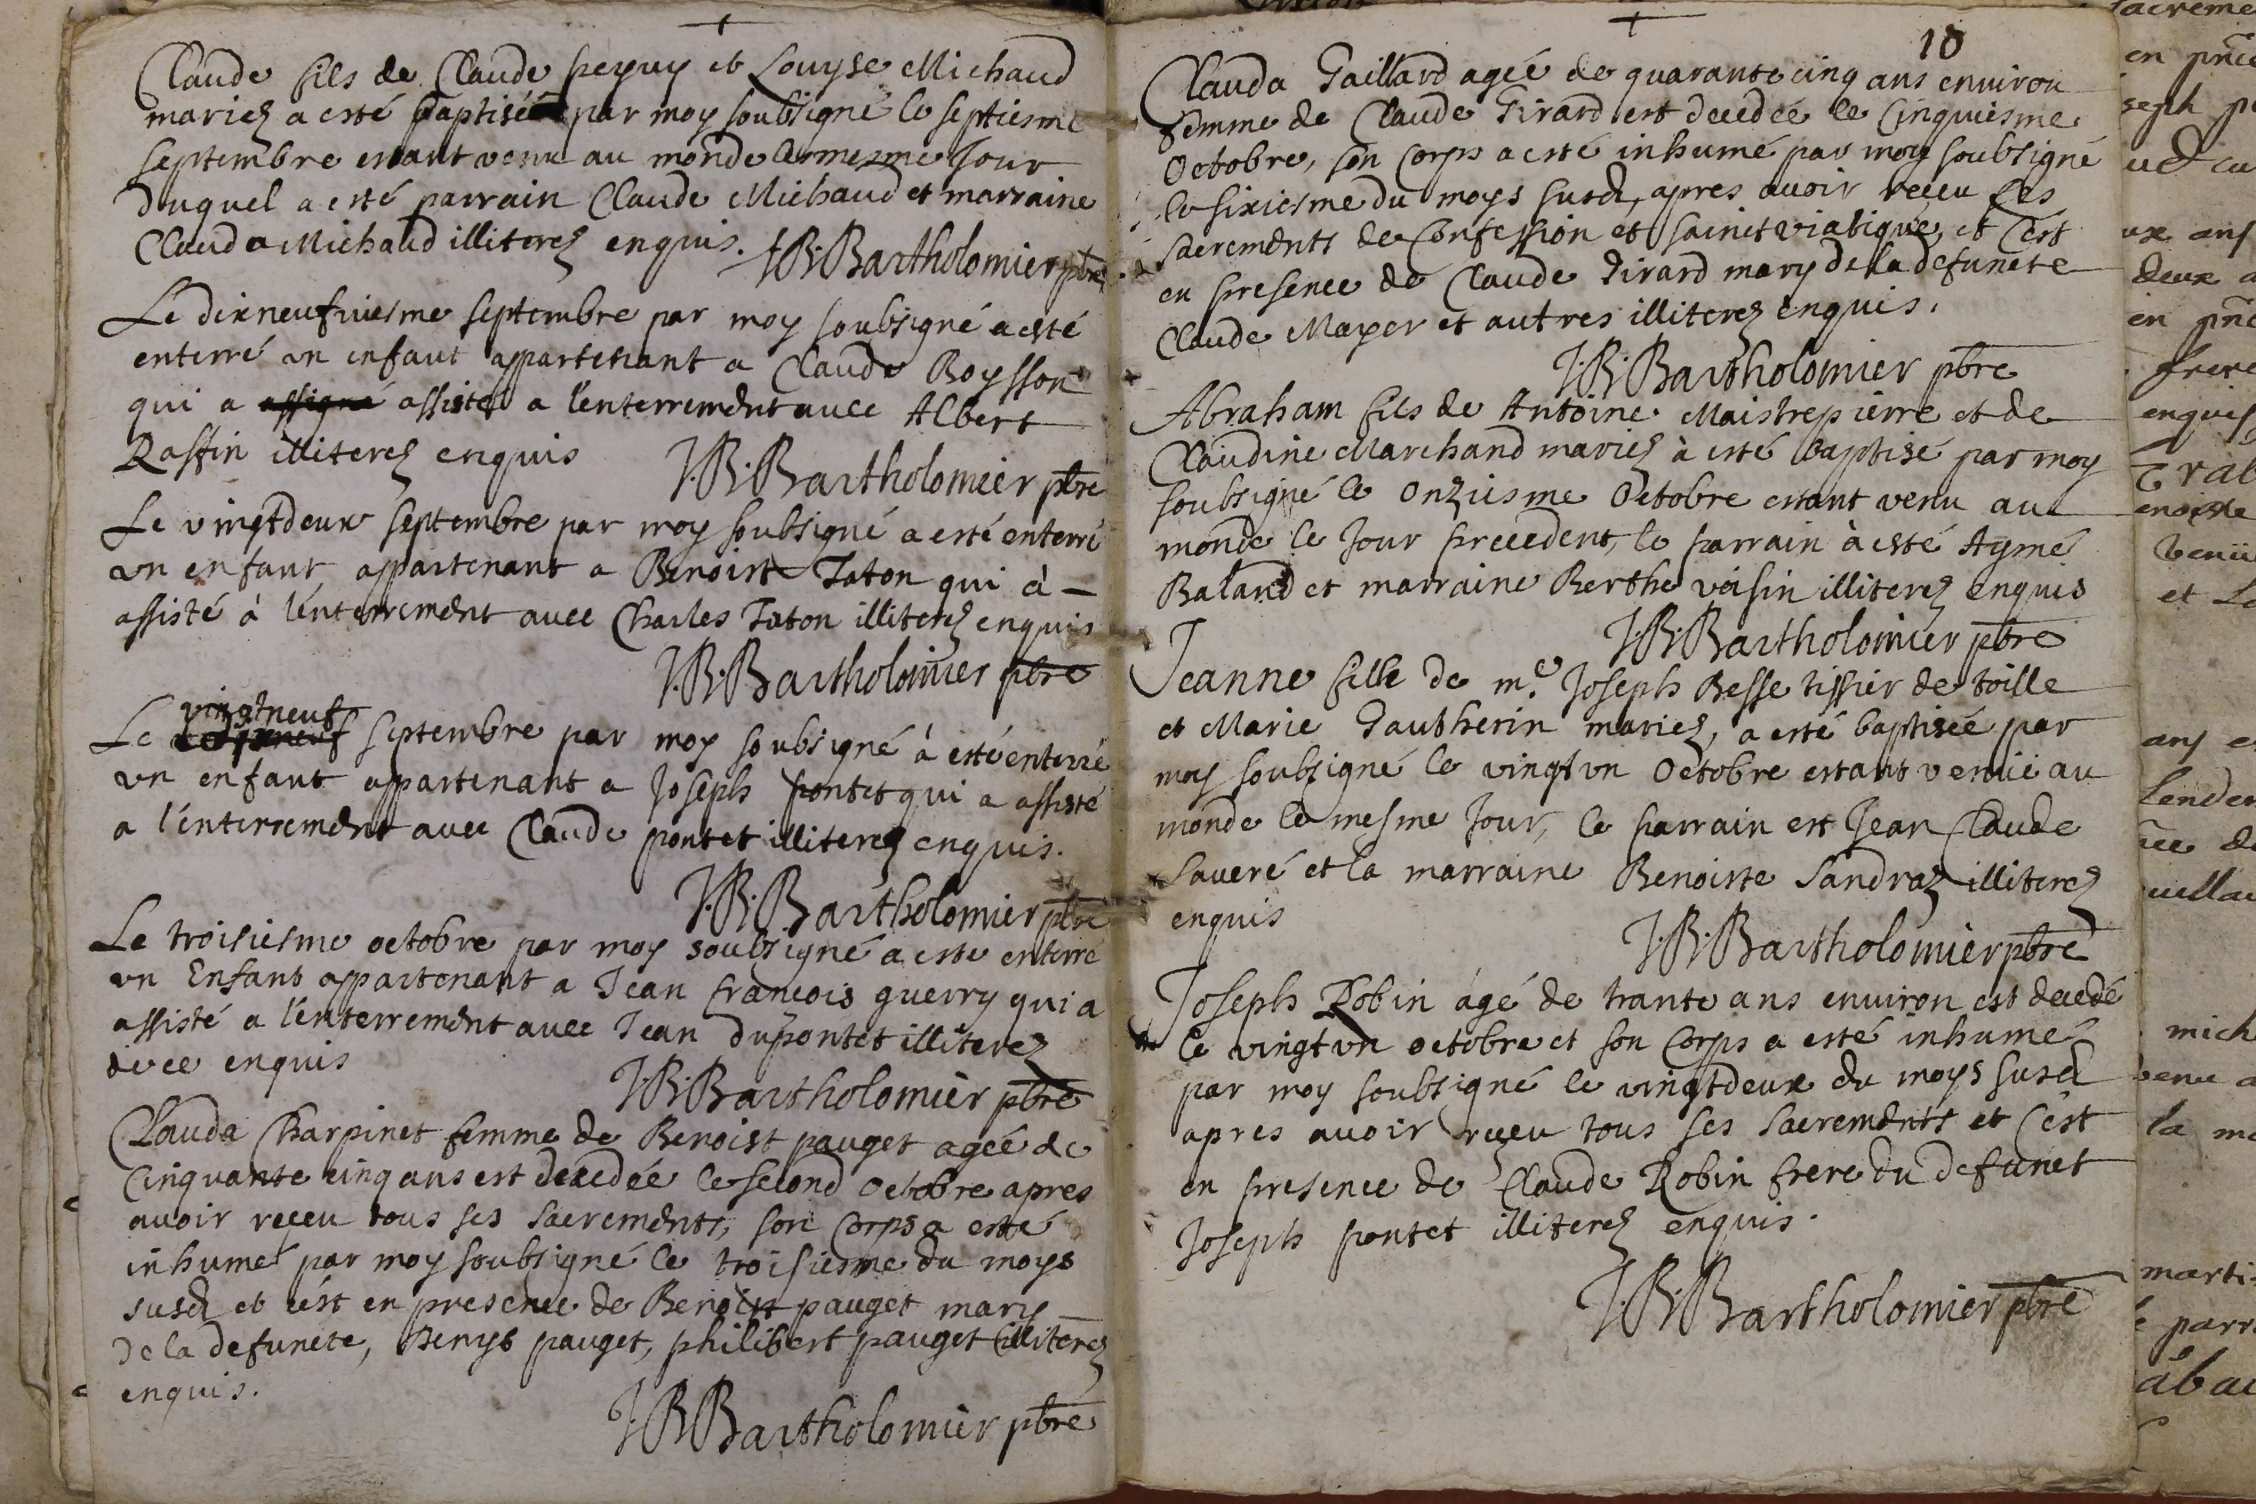 Claude fils de Claude peyuy et Louyse Michaud
mariez a esté baptisé par moy soubsigné le septiesme
septembre estant venu au monde le mesme Jour
duquel a esté parrain Claude Michaud et marraine
Clauda Michaud illiterez enquis. J.B. Bartholomier pbre
Le dixneufviesme septembre par moy soubsigné a esté
enterré vn enfant appartenant a Claude Boysson
qui a assigné assisté a l'enterrement auec Albert
Raffin illiterez enquis J.B. Bartholomier pbre
Le vingtdeux septembre par moy soubsigné a esté enterré
vn enfant appartenant a Benoist Taton qui à
assisté à l'enterrement auec Charles Taton illiterez enquis
J.B. Bartholomier pbre
vingtneuf
Le septembre par moy soubsigné à esté enterré
vn enfant appartenant a Joseph pontet qui a assisté
a l'enterrement auec Claude pontet illiterez enquis.
J.B. Bartholomier pbre
Le troisiesme octobre par moy soubsigné a esté enterré
vn Enfant appartenant a Jean francois guerry qui a
assisté a l'enterrement auec Jean dupontet illiterez
enquis
J.B. Bartholomier pbre
Clauda Charpinet femme de Benoist pauget ageé de
Cinquante cinq ans est decedée le second Octobre apres
auoir reçeu tous ses sacrements, son Corps a esté
inhumé par moy soubsigné le troisiesme du moys
susd et c'est en presence de Benoist pauget mary
de la defuncte, Benyst pauget, philibert pauget illiterez
enquis.
J.B. Bartholomier pbre
10
Clauda Gaillard ageé de quarante cinq ans environ
femme de Claude Girard est decedeé le Cinquiesme
Octobre, son Corps a esté inhumé par moy soubsigné
le sixiesme du moys susd, apres auoir receu les
sacrements de Confession et sainct viatique, et C'est
en presence de Claude Girard mary de la defuncte
Claude Mayer et autres illiterez enquis.
J.B. Bartholomier pbre
Abraham fils de Antoine Maistrepierre et de
Claudine Marchand mariez à esté baptisé par moy
soubsigné le Onziesme Octobre estant venu au
monde le Jour precedent, le parrain à esté Aymé
Baland et marraine Berthe voisin illiterez enquis
J.B. Bartholomier pbre
Jeanne fille de m.e Joseph Besse tissier de toille
et Marie Gautherin mariez, a esté baptiseé par
moy soubsigné le vingt vn Octobre estant venüe au
monde le mesme Jour, le parrain est Jean Claude
saueré et la marraine Benoiste sandraz illiterez
enquis
J.B. Bartholomier pbre
Joseph Robin âgé de trante ans environ est decedé
le vingt vn octobre et son Corps a esté inhumé
par moy soubsigné le vingtdeux du moys susd
apres auoir reçeu tous ses sacrements et C'est
en presence de Claude Robin frere du defunct
Joseph pontet illiterez enquis.
J.B. Bartholomier pbre